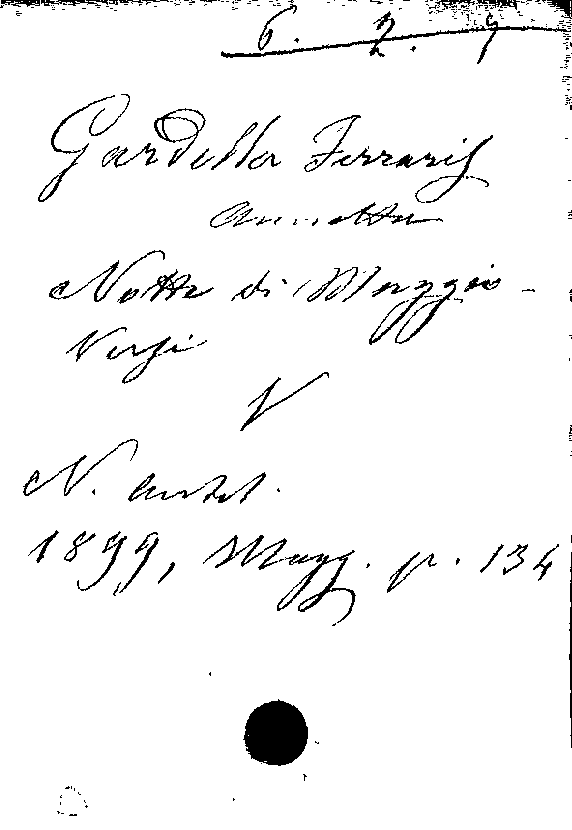 6. 2. 9
Gardella Ferraris
Annetta
Notte di Maggio -
Versi
V
N. Antol.
1899, Magg. p. 134